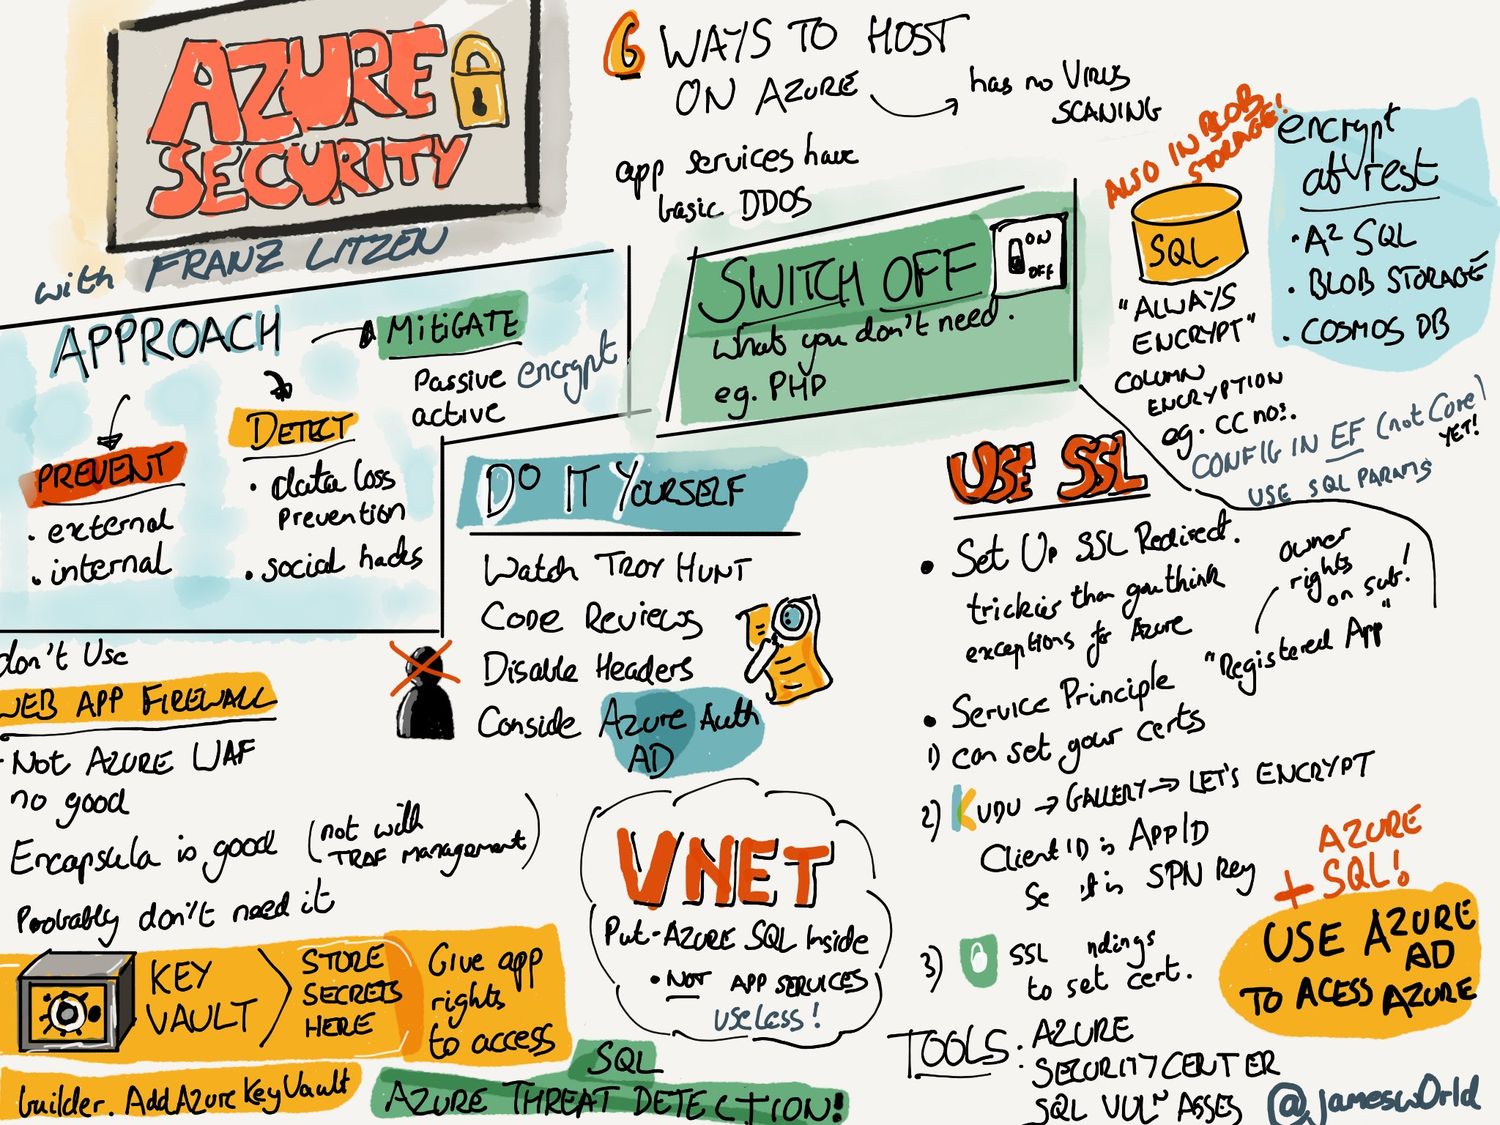 AZURE
SECURITY
with FRANZ LITZEN
6 WAYS TO HOST
ON AZURE
has no VIRUS
SCANING
app services have
basic DDOS
APPROACH
MITIGATE
Passive encrypt
active
DETECT
• data loss
Prevention
• social hacks
PREVENT
• external
• internal
SWITCH OFF
ON
OFF
whats you don't need.
eg. PHP
ALSO IN BLOB
STORAGE!
SQL
"ALWAYS
ENCRYPT"
COLUMN
ENCRYPTION
eg. CC nos.
CONFIG IN EF (not Core)
YET!
USE SQL PARAMS
encrypt
at rest
• AZ SQL
• BLOB STORAGE
• COSMOS DB
DO IT YOURSELF
Watch TROY HUNT
Code Reviews
Disable Headers
Conside Azure Auth
AD
USE SSL
• Set Up SSL Redirect.
trickier than you think
exceptions for Azure
• Service Principle
"Registered App"
owner
rights
on sub!
1) can set your certs
2) KUDU → GALLERY → LET'S ENCRYPT
Client ID is App ID
Se it is SPN Key
3) SSL ndings
to set cert.
don't Use
WEB APP FIREWALL
- Not AZURE WAF
no good
Encapsula is good (not with
TRAF management)
Probably don't need it
KEY
VAULT
STORE
SECRETS
HERE
Give app
rights
to access
builder. AddAzureKeyVault
VNET
Put AZURE SQL Inside
• NOT APP SERVICES
useless!
SQL
AZURE THREAT DETECTION!
+ AZURE
SQL!
USE AZURE
AD
TO ACESS AZURE
TOOLS • AZURE
SECURITY CENTER
SQL VULN ASSES
@jamesw0rld